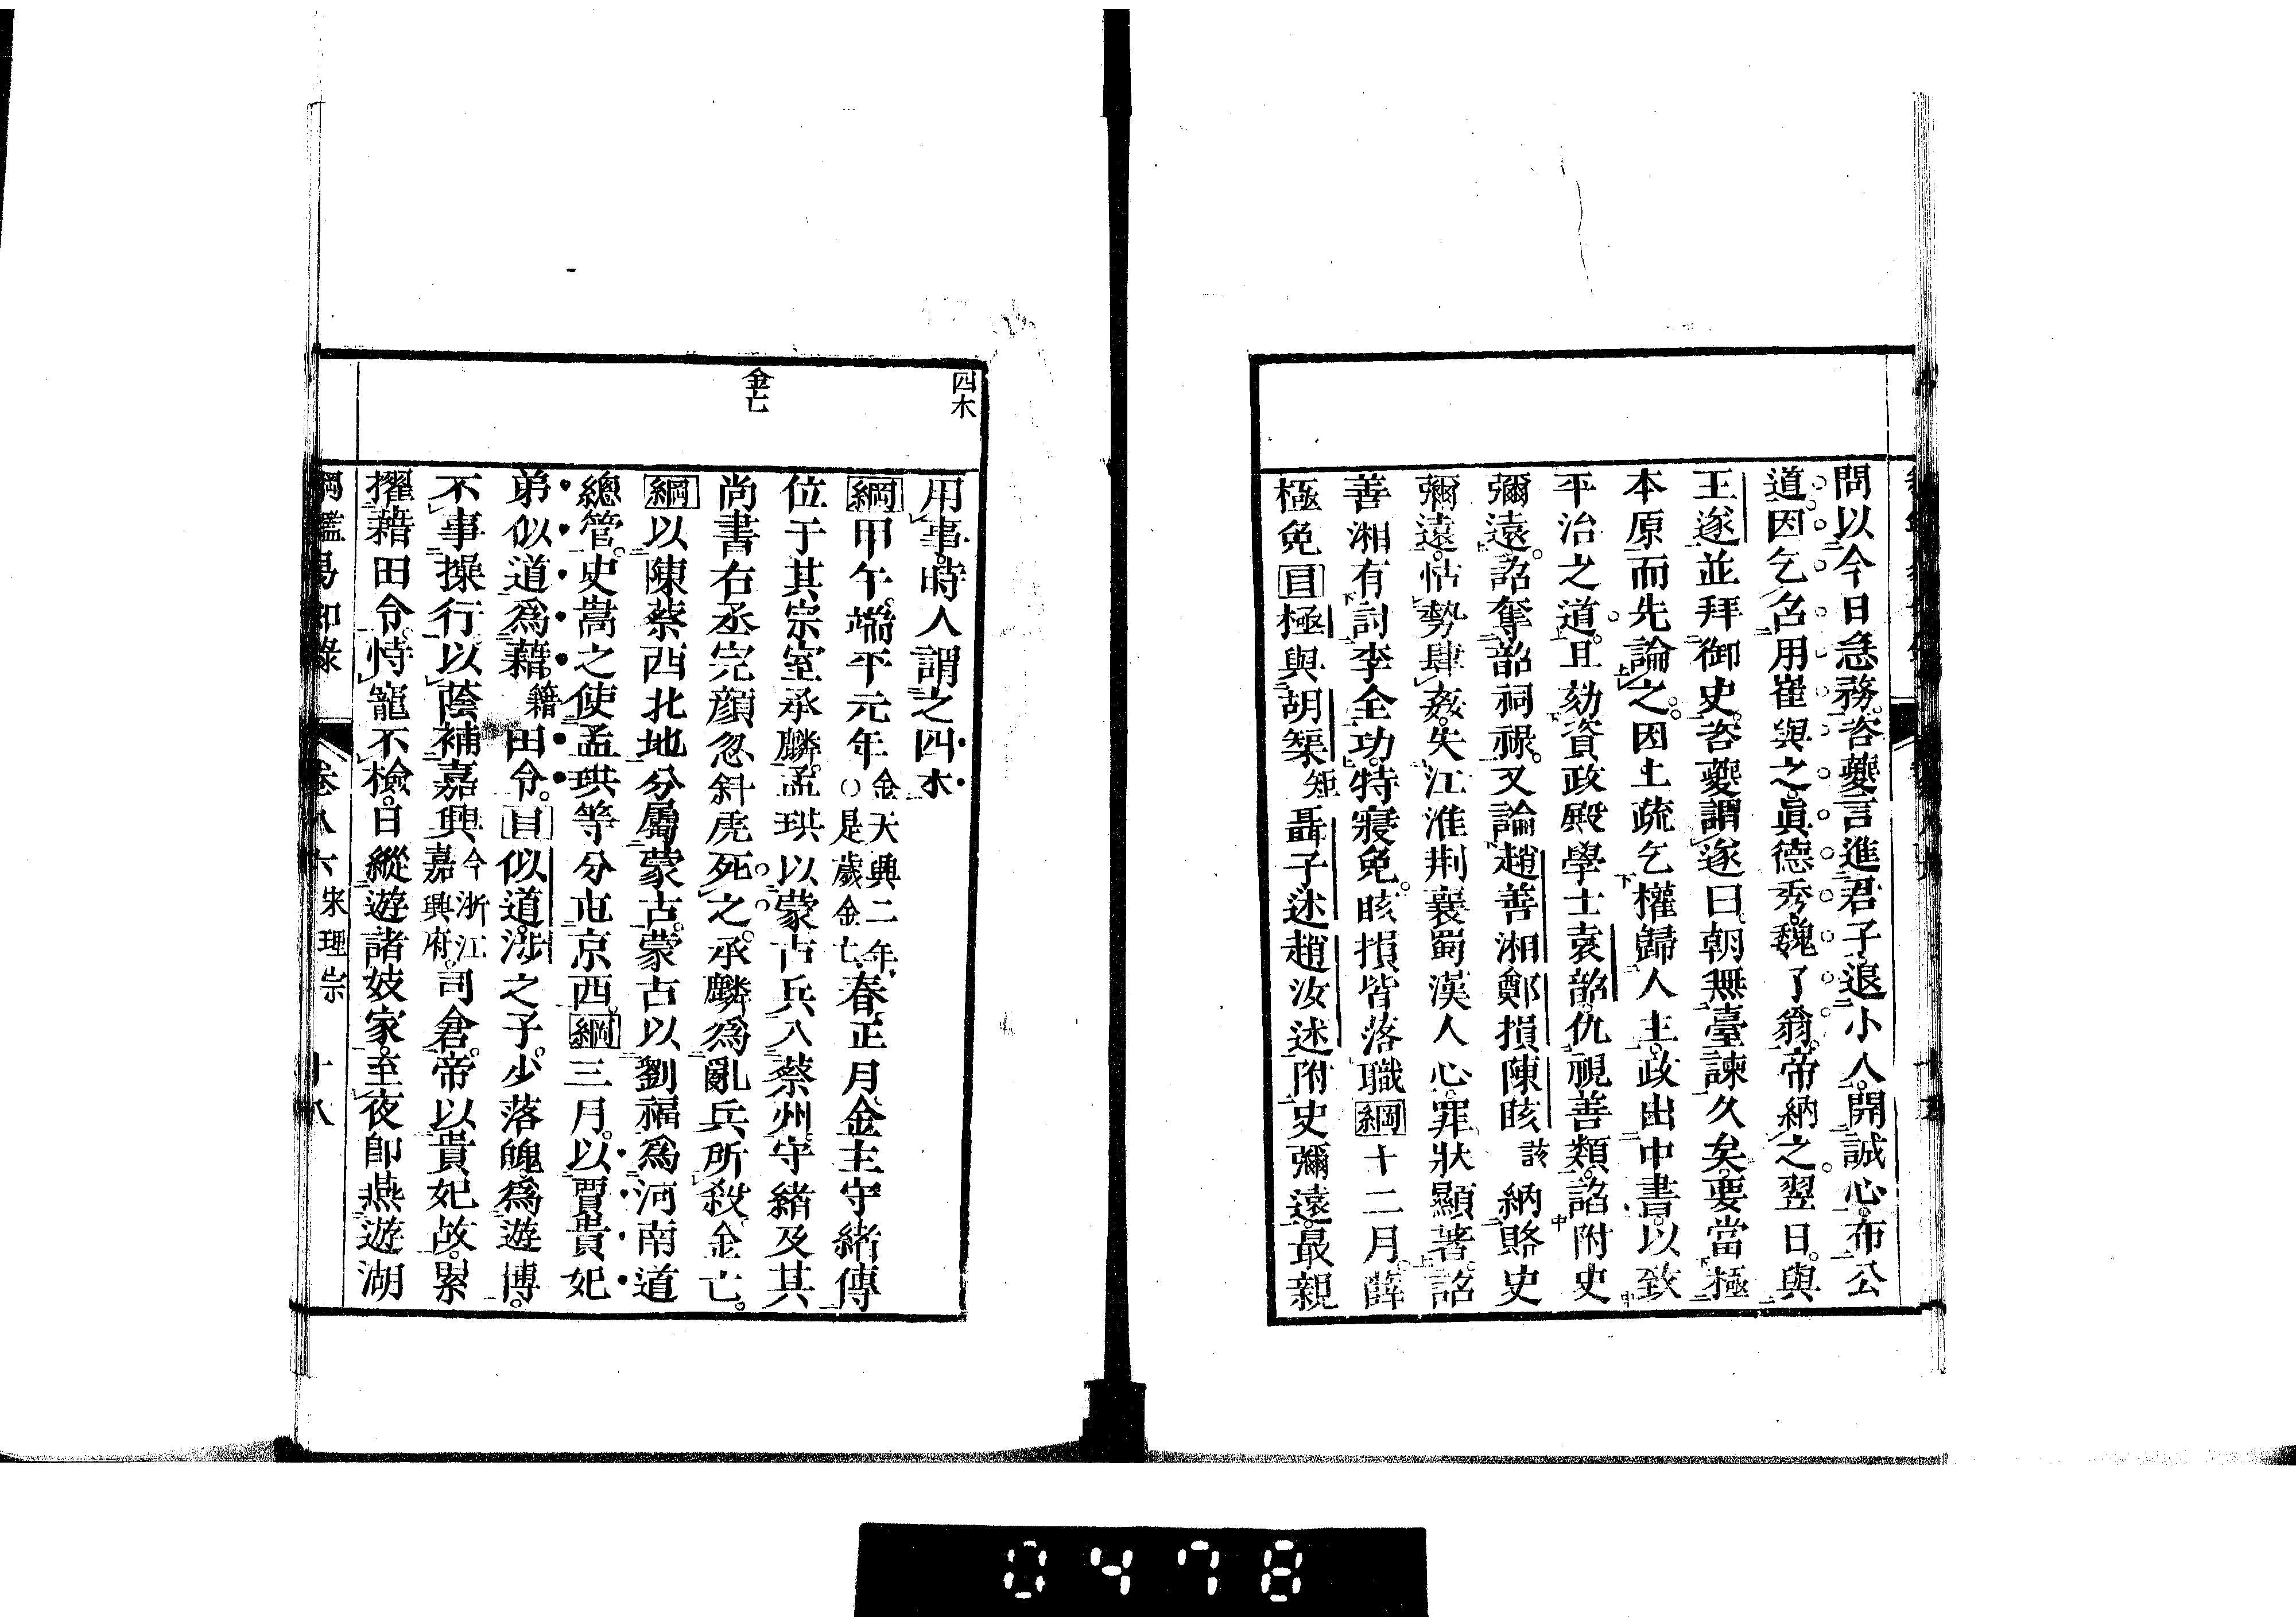 問以今日急務。咨夔言進君子。退小人。開誠心。布公
道。因乞召用崔與之。眞德秀。魏了翁。帝納之。翌日。與
王遂並拜御史。咨夔謂遂曰。朝無臺諫久矣。要當極
本原而先論之。因上疏乞權歸人主。政出中書。以致
平治之道。且劾資政殿學士袁韶。仇視善類。諂附史
彌遠。詔奪韶祠祿。又論趙善湘鄭損陳晐該納賂史
彌遠。怙勢肆姦。失江淮荆襄蜀漢人心。罪狀顯著。詔
善湘有討李全功。特寢免。晐損皆落職綱十二月。薛
極免目極與胡榘矩聶子述趙汝述附史彌遠。最親
四木
用事。時人謂之四木
綱甲午。端平元年金天興二年、○是歲金亡、春。正月。金主守緒傳
位于其宗室承麟。孟珙以蒙古兵入蔡州。守緒及其
金亡
尚書右丞完顏忽斜虎死之。承麟爲亂兵所殺。金亡。
綱以陳蔡西北地分屬蒙古。蒙古以劉福爲河南道
總管。史嵩之使孟珙等分屯京西。綱三月。以賈貴妃
弟似道爲藉。籍田令。目似道。涉之子。少落魄。爲遊博。
不事操行。以蔭補嘉興今浙江嘉興府。司倉。帝以貴妃故。累
擢藉田令。恃寵不檢。日縱遊諸妓家。至夜卽燕遊湖
綱鑑易知錄 卷八六 宋理宗 十八
0478